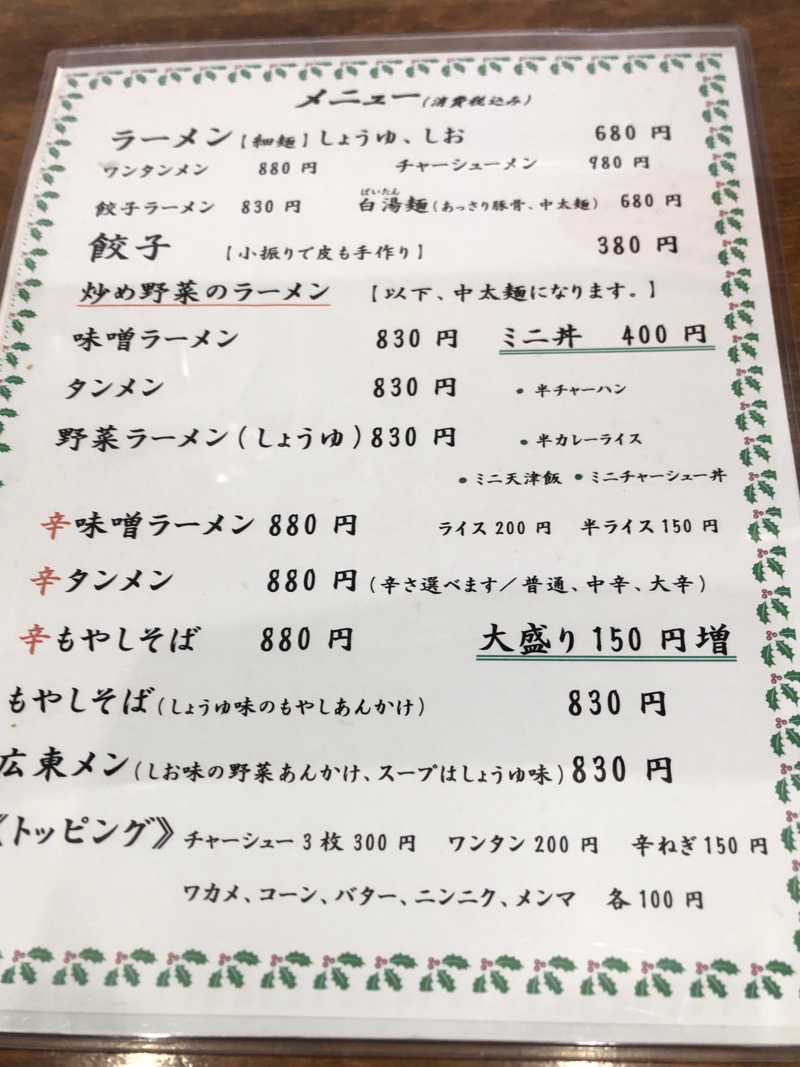 メニュー(消費税込み)
ラーメン【細麺】しょうゆ、しお 680 円
ワンタンメン 880 円 チャーシューメン 980 円
餃子ラーメン 830 円 白湯麺(あっさり豚骨、中太麺) 680 円
ぱいたん
餃子 【小振りで皮も手作り】 380 円
炒め野菜のラーメン 【以下、中太麺になります。】
味噌ラーメン 830 円 ミニ丼 400 円
タンメン 830 円 ・半チャーハン
野菜ラーメン(しょうゆ)830 円 ・半カレーライス
・ミニ天津飯 ・ミニチャーシュー丼
辛味噌ラーメン 880 円 ライス 200 円 半ライス 150 円
辛タンメン 880 円(辛さ選べます/普通、中辛、大辛)
辛もやしそば 880 円 大盛り 150 円増
もやしそば(しょうゆ味のもやしあんかけ) 830 円
広東メン(しお味の野菜あんかけ、スープはしょうゆ味)830 円
《トッピング》チャーシュー 3 枚 300 円 ワンタン 200 円 辛ねぎ 150 円
ワカメ、コーン、バター、ニンニク、メンマ 各 100 円